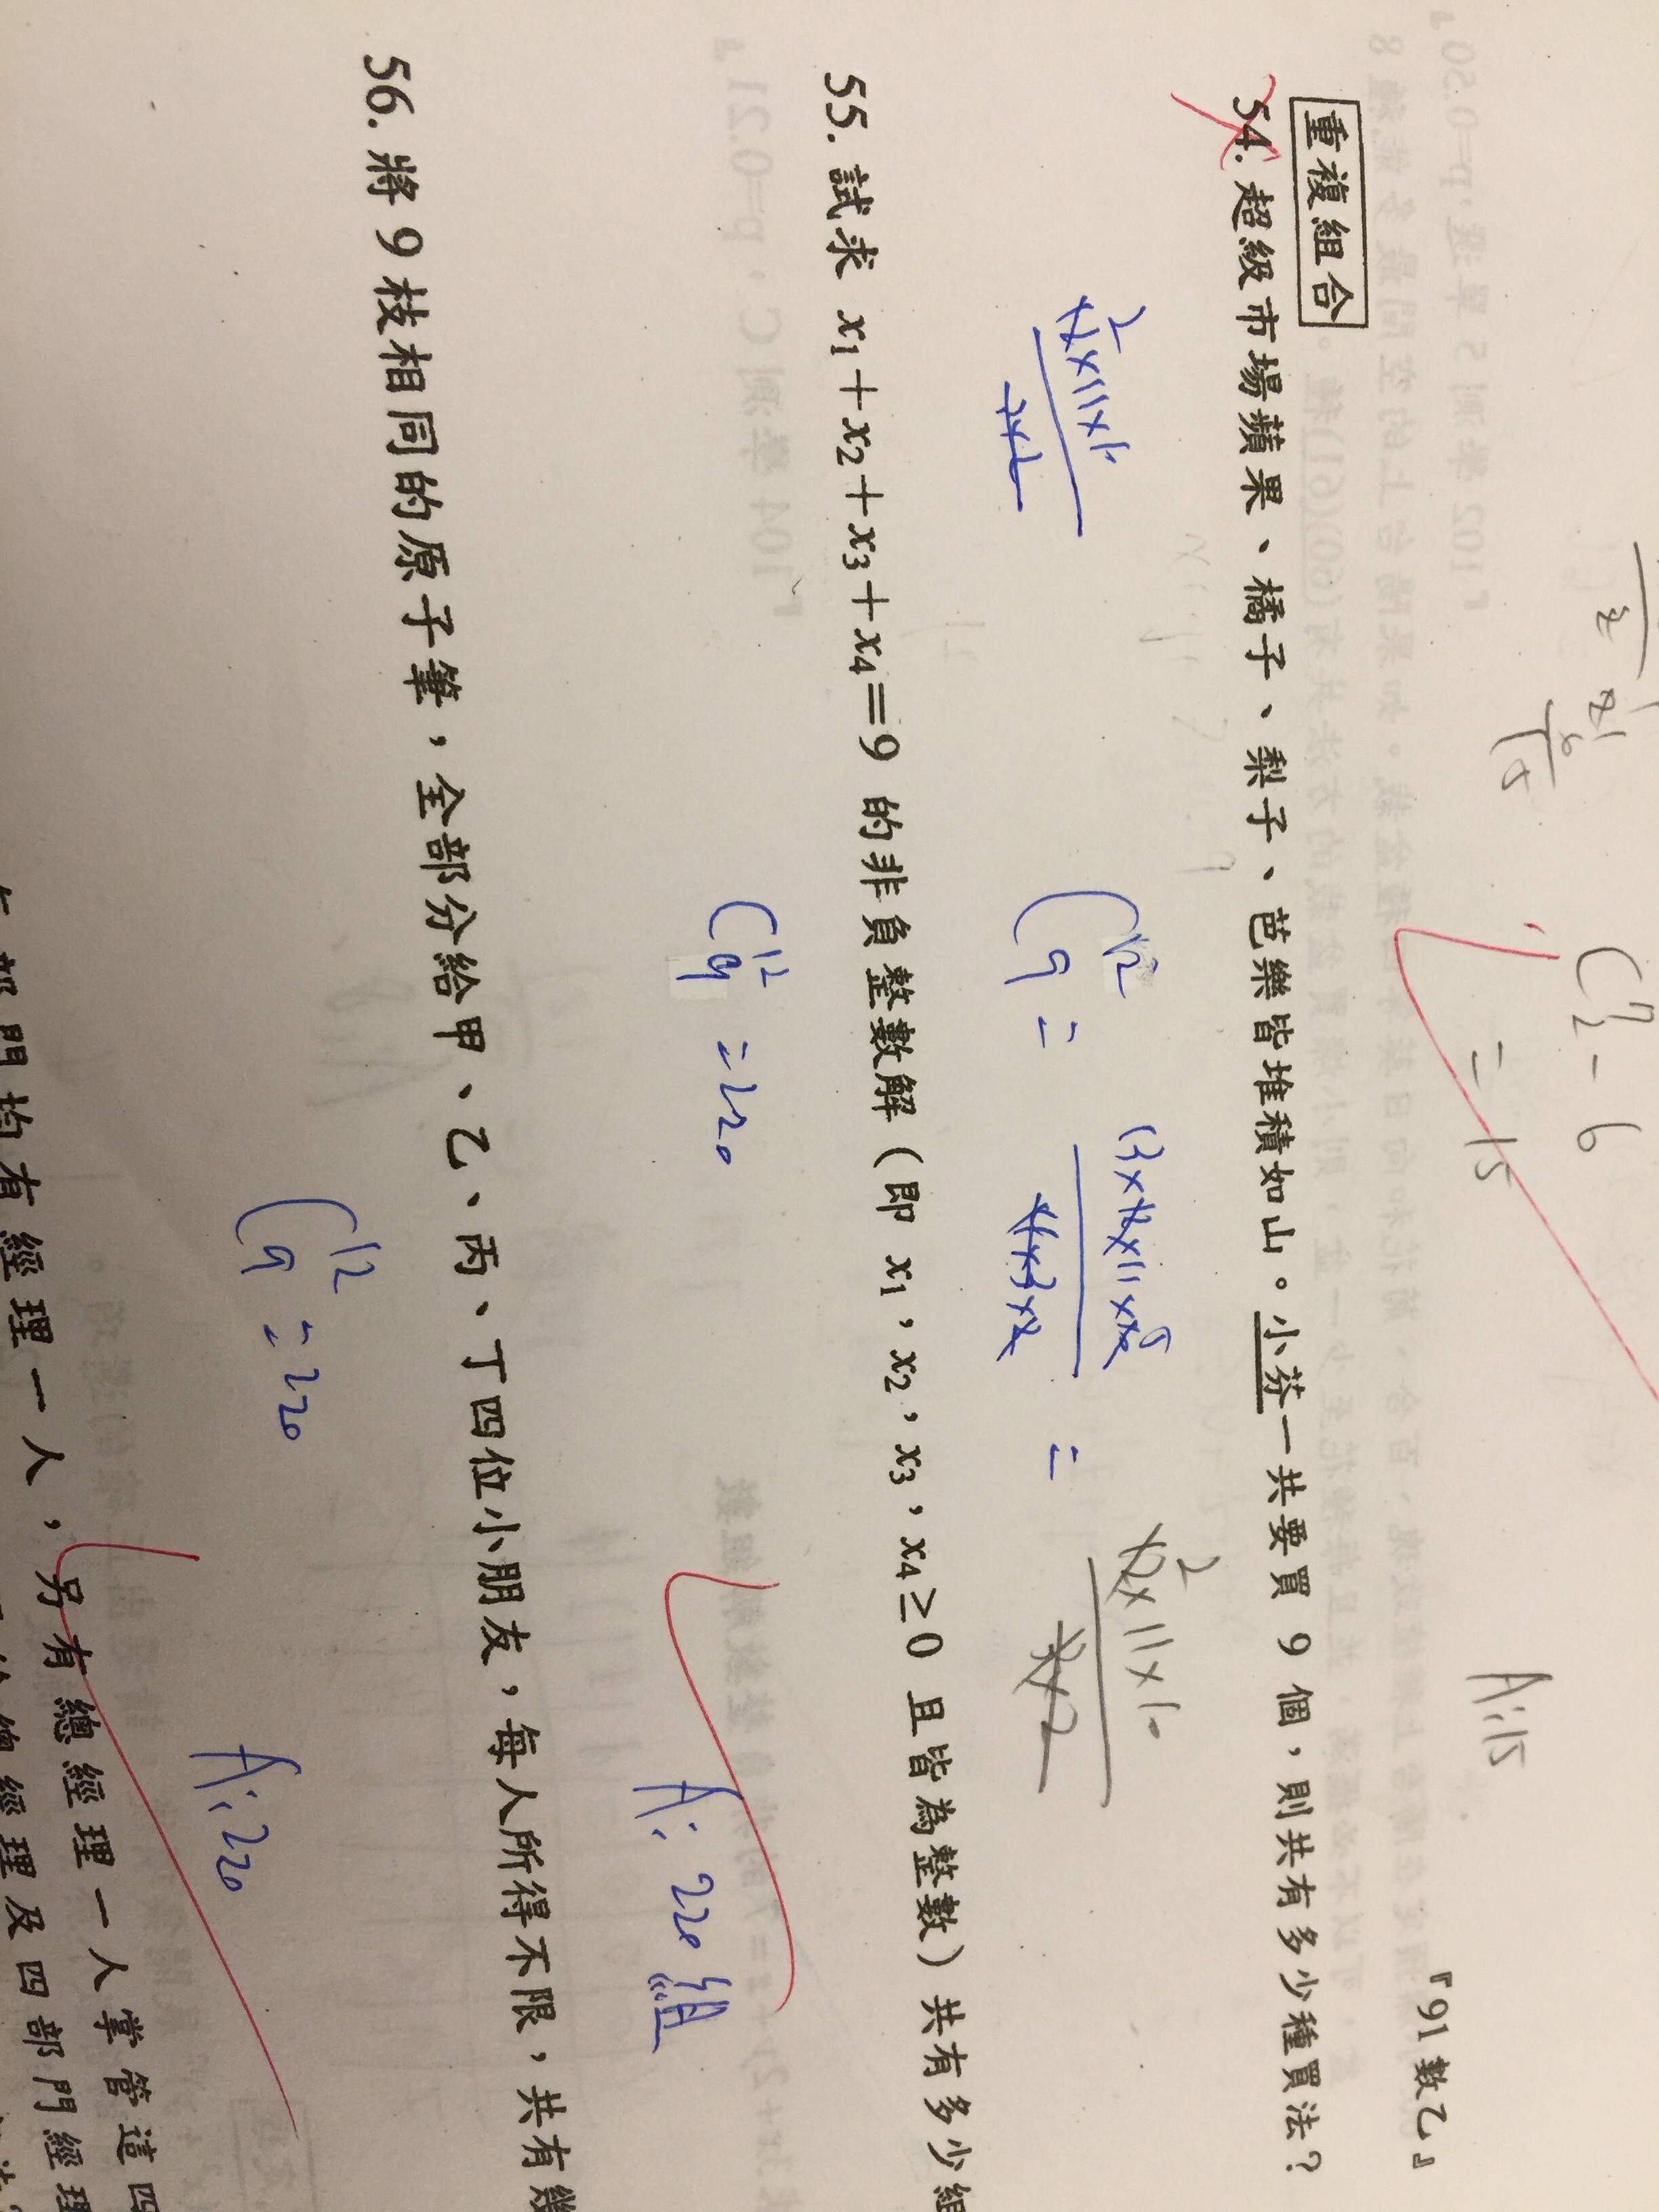 C⁷₂ - 6
= 15
A:15
『91 數乙』
重複組合
54. 超級市場蘋果、橘子、梨子、芭樂皆堆積如山。小芬一共要買 9 個，則共有多少種買法？
C¹²₉ =
=
55. 試求 x₁+x₂+x₃+x₄=9 的非負整數解（即 x₁，x₂，x₃，x₄≥0 且皆為整數）共有多少組
C¹²₉ =220
A: 220 組
56. 將 9 枝相同的原子筆，全部分給甲、乙、丙、丁四位小朋友，每人所得不限，共有幾
C¹²₉ =220
A:220
部門均有經理一人，另有總經理一人掌管這四
總經理及四部門經理